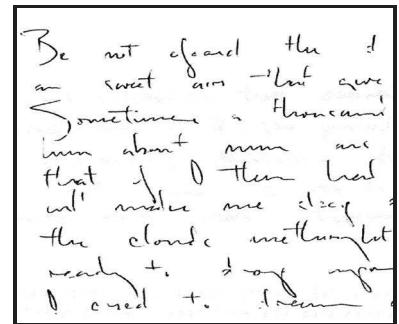 Be not afeard the
sweet airs that give
Sometimes a thousand
hum about mine
that if I then had
will make me sleep
the clouds methought
ready to drop upon
I cried to dream